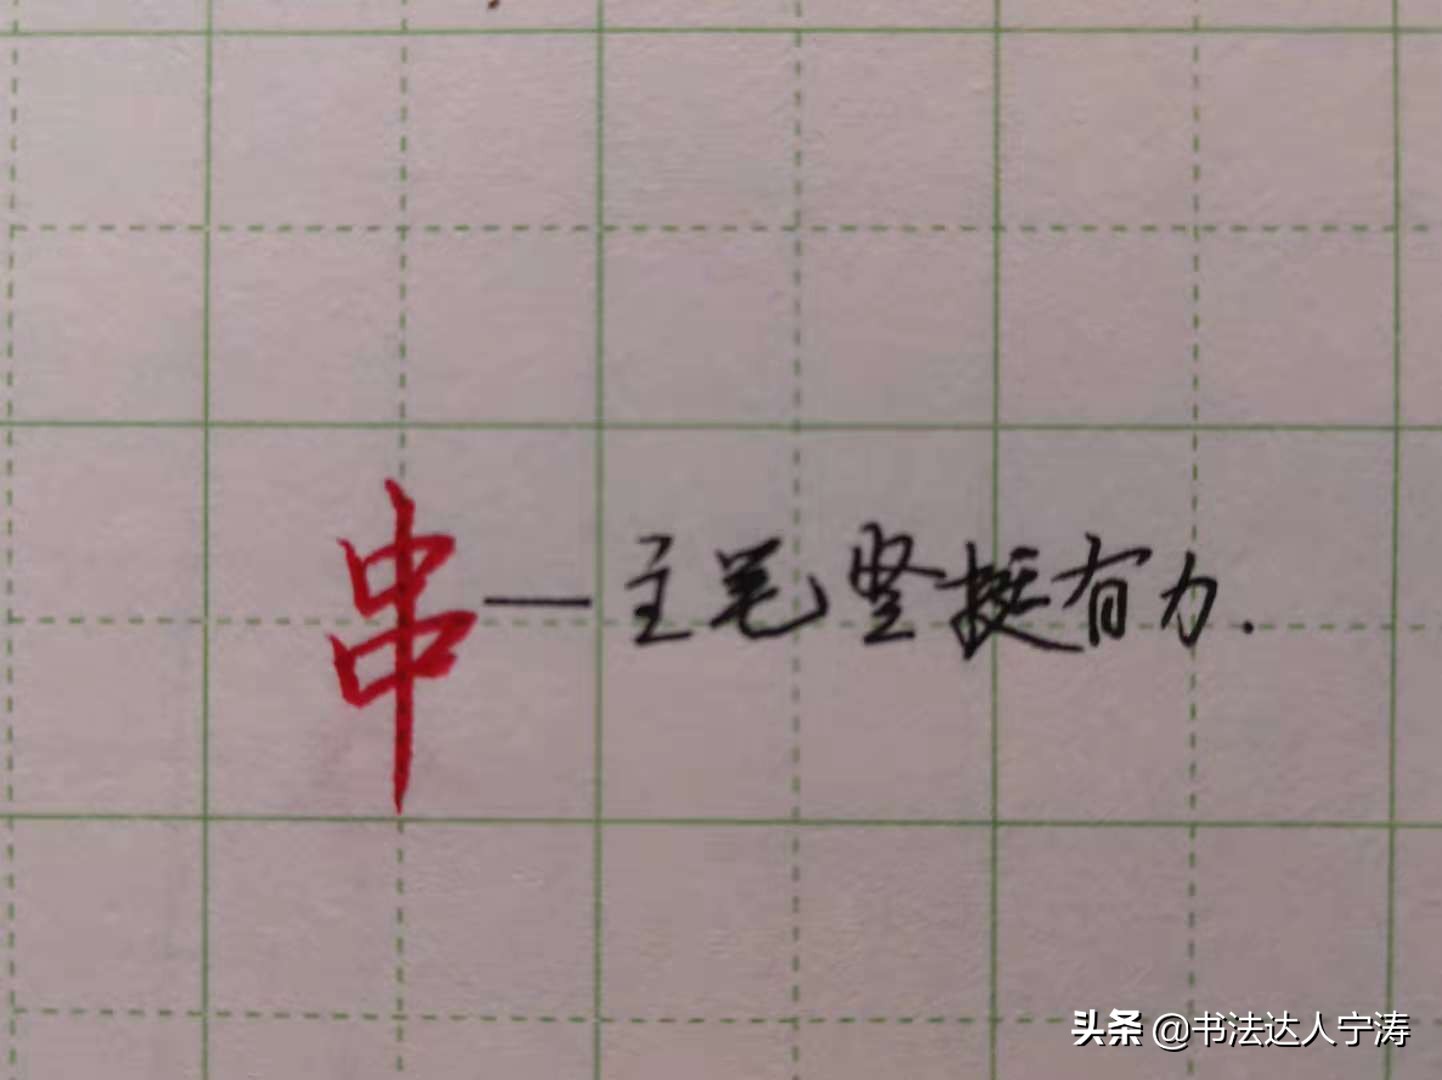 串—主笔竖挺有力.
头条 @书法达人宁涛